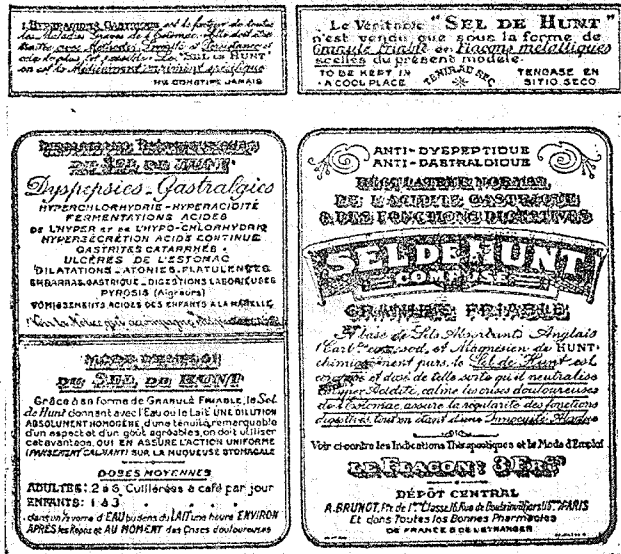 L'HYPERACIDITÉ GASTRIQUE est le facteur de toutes
les Maladies Graves de l'Estomac. Elle doit être
traitée avec Méthode, Fermeté et Persistance et
le plus tôt possible. Le "SEL DE HUNT"
en est le Médicament vraiment spécifique
NE CONSTIPE JAMAIS
Le Véritable "SEL DE HUNT"
n'est vendu que sous la forme de
Granulé friable en Flacons métalliques
scellés du présent modèle.
TO BE KEPT IN
A COOL PLACE
TENIR AU SEC
TENGASE EN
SITIO SECO
DU SEL DE HUNT
Dyspepsies - Gastralgies
HYPERCHLORHYDRIE - HYPERACIDITÉ
FERMENTATIONS ACIDES
DE L'HYPER ET DE L'HYPO-CHLORHYDRIE
HYPERSÉCRÉTION ACIDE CONTINUE
GASTRITES CATARRHES
ULCÈRES DE L'ESTOMAC
DILATATIONS - ATONIES - FLATULENCES
EMBARRAS GASTRIQUE - DIGESTIONS LABORIEUSES
PYROSIS (Aigreurs)
VOMISSEMENTS ACIDES DES ENFANTS A LA MAMELLE
Voir la Notice qui accompagne
MODE D'EMPLOI
DU SEL DE HUNT
Grâce à sa forme de GRANULÉ FRIABLE, le Sel
de Hunt donnant avec l'Eau ou le Lait UNE DILUTION
ABSOLUMENT HOMOGÈNE, d'une ténuité remarquable
d'un aspect et d'un goût agréables, on doit utiliser
cet avantage, QUI EN ASSURE L'ACTION UNIFORME
(PANSEMENT CALMANT) SUR LA MUQUEUSE STOMACALE
DOSES MOYENNES
ADULTES: 2 à 6 Cuillérées à café par jour
ENFANTS: 1 à 3
dans un 1/2 verre d'EAU ou bien du LAIT une heure ENVIRON
APRÈS les Repas et AU MOMENT des Crises douloureuses
ANTI-DYSPEPTIQUE
ANTI-GASTRALGIQUE
RÉGULATEUR NORMAL
DE L'ACIDITÉ GASTRIQUE
& DES FONCTIONS DIGESTIVES
SEL DE HUNT
COMPOSÉ
GRANULÉ FRIABLE
A base de Sels Absorbants Anglais
sod. et Magnésien de HUNT
chimiquement purs, le Sel de Hunt est
composé et dosé de telle sorte qu'il neutralise
l'hyper Acidité, calme les crises douloureuses
de l'Estomac, assure la régularité des fonctions
digestives tout en étant d'une Innocuité Absolue
Voir ci-contre les Indications Thérapeutiques et le Mode d'Emploi
LE FLACON: 3 Frs
DÉPÔT CENTRAL
A. BRUNOT, Ph. de 1re Classe, 16 Rue de Boulainvilliers, PARIS
Et dans Toutes les Bonnes Pharmacies
DE FRANCE & DE L'ÉTRANGER